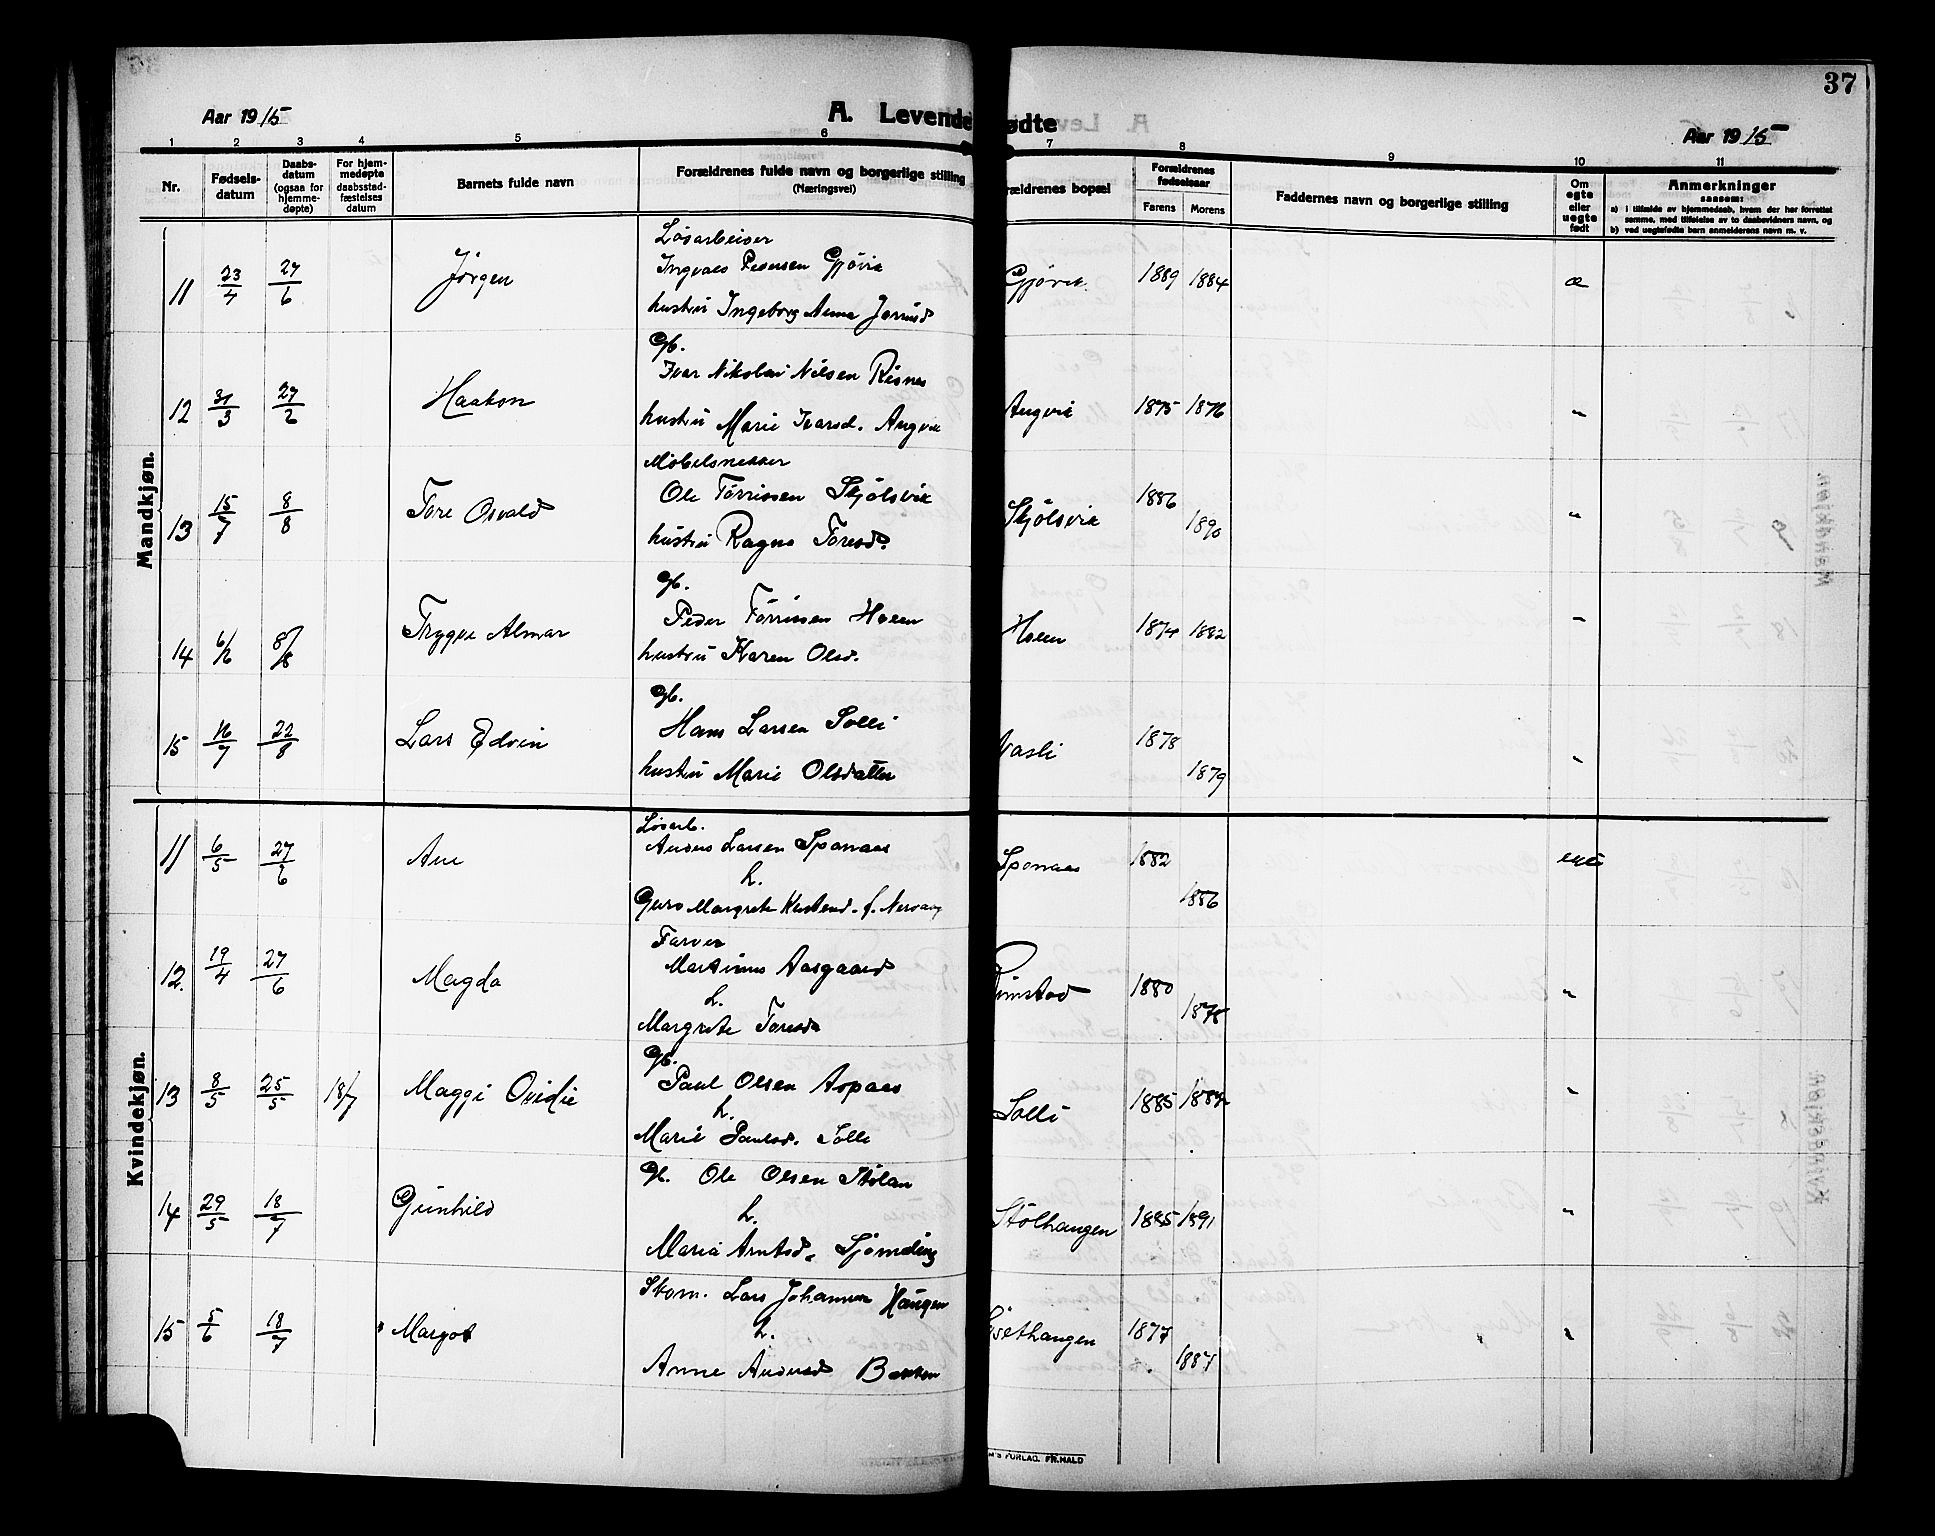 37
Aar 1915
A. Levende
ødte
Aar 1915
1 2 3 4 5 6 7 8 9 10 11
Nr.
Fødsels-
datum
Daabs-
datum
(ogsaa for
hjemme-
døpte)
For hjem-
medøpte
daabsstad-
fæstelses
datum
Barnets fulde navn
Forældrenes fulde navn og borgerlige stilling
(Næringsvei)
rældrenes bopæl
Forældrenes
fødselsaar
Farens Morens
Faddernes navn og borgerlige stilling
Om
egte
eller
uegte
født
Anmerkninger
saasom:
a) i tilfælde av hjemmedaab, hvem der har forrettet
samme, med tilføielse av to daabsvidners navn, og
b) ved uegtefødte barn anmelderens navn m. v.
Mandkjøn.
Løsarbeider
11 23/4 27/6 Jørgen Ingvald Pedersen Gjøvik Gjøvik 1889 1884 æ
hustru Ingeborg Anna
Gb.
12 31/3 27/2 Haakon Ivar Nikolai Nilsen Risnes Angvik 1875 1876 "
hustru Marie Ivarsd. Angvik
Møbelsnekker
13 15/7 8/8 Tore Osvald Ole Tørrissen Skjølsvik Skjølsvik 1886 1890 "
hustru Ragna Toresd.
Gb.
14 6/6 8/8 Trygve Almar Peder Tørrissen Hoem Hoem 1874 1882 "
hustru Karen Olsd.
Gb.
15 16/7 22/8 Lars Edvin Hans Larsen Solli 1878 1879 "
hustru Marie Olsdatter
Kvindekjøn.
Løsarb.
11 6/5 27/6 Ane Anders Larsen Sponaas Sponaas 1882 1886 egte
h.
Guro Margrete f.
Farver
12. 19/4 27/6 Magda Martinus Aasgaard Rimstad 1880 1878 "
h.
Margrete Toresd
Gb.
13 8/5 25/5 18/7 Maggi Ovidie Paul Olsen Aspaas Solli 1885 "
h.
Marie Paulsd. Solli
14 29/5 18/7 Gunhild Gb. Ole Olsen Stølan Stølhaugen 1885 1891 "
h.
Maria Arntsd.
15 5/6 18/7 Margot Skom. Lars Johansen Haugen 1877 1887 "
h.
Anne Andersd Bakken
M'S FORLAG, FR.HALD